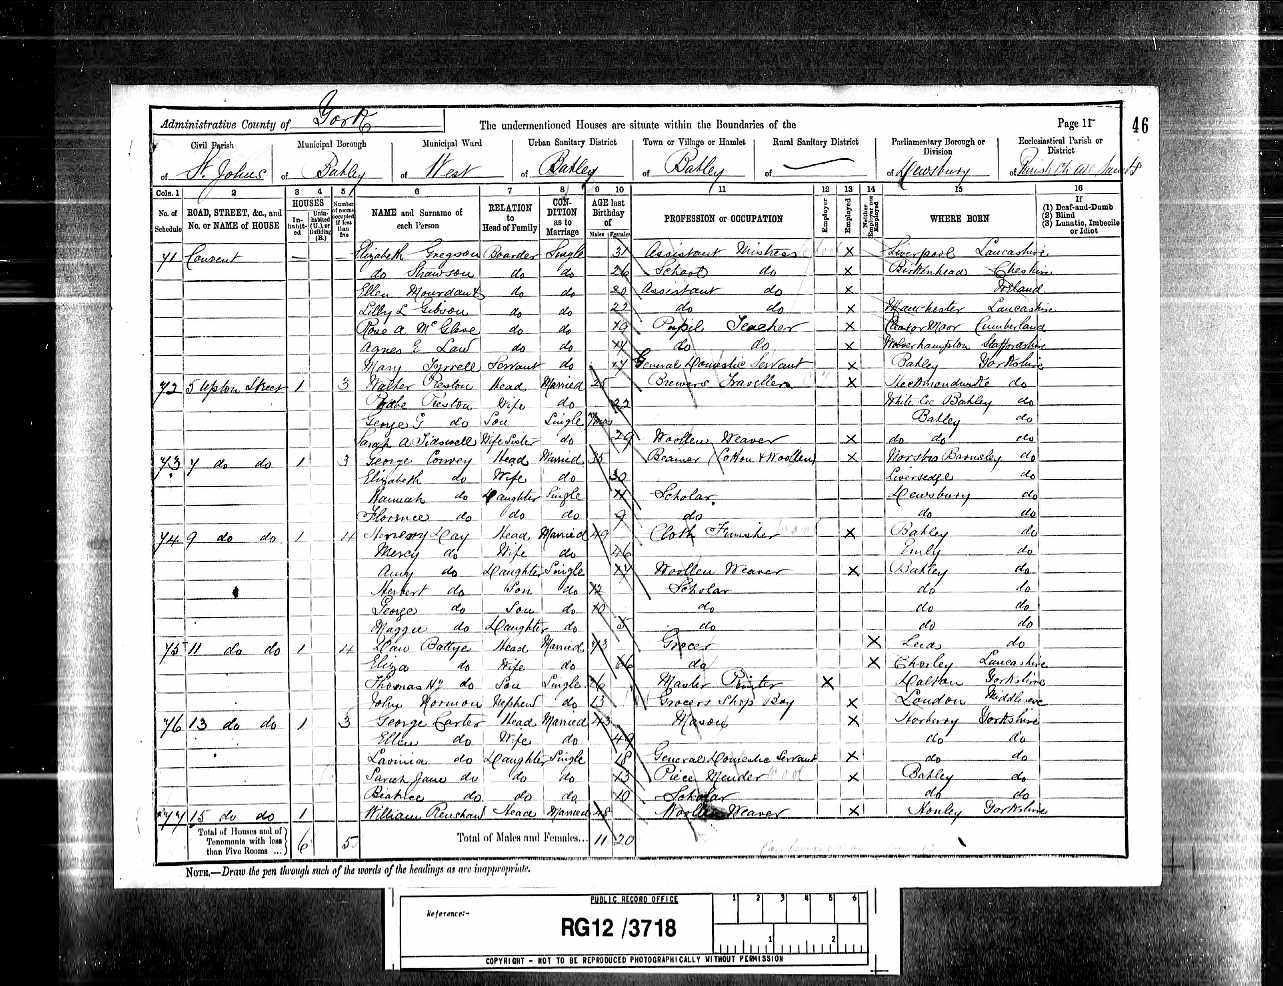 Administrative County of York
The undermentioned Houses are situate within the Boundaries of the
Page 11
46
Civil Parish
of St. Johns
Municipal Borough
of Batley
Municipal Ward
of West
Urban Sanitary District
of Batley
Town or Village or Hamlet
of Batley
Rural Sanitary District
of
Parliamentary Borough or Division
of Dewsbury
Ecclesiastical Parish or District
of
Cols. 1 2 3 4 5 6 7 8 9 10 11 12 13 14 15 16
No. of Schedule
ROAD, STREET, &c., and No. or NAME of HOUSE
HOUSES
In-habit-ed
Unin-habited (U.) or Building (B.)
Number of rooms occupied if less than five
NAME and Surname of each Person
RELATION to Head of Family
CON-DITION as to Marriage
AGE last Birthday of
Males Females
PROFESSION or OCCUPATION
Employer
Employed
Neither Employer nor Employed
WHERE BORN
If
(1) Deaf-and-Dumb
(2) Blind
(3) Lunatic, Imbecile or Idiot
71 Convent Elizabeth Gregson Boarder Single 31 Assistant Mistress X Liverpool Lancashire
do Shawson do do 26 School do X Birkenhead Cheshire
Ellen Mourdant do do 20 Assistant do X Ireland
Lilly L Gibson do do 22 do do X Manchester Lancashire
Rose A McGlave do do 19 Pupil Teacher X Cleator Moor Cumberland
Agnes E Law do do do do X Wolverhampton Staffordshire
Mary Tyrrell Servant do General Domestic Servant X Batley Yorkshire
72 5 Upton Street 1 3 Walter Preston Head Married 25 Brewers Traveller X Heckmondwike do
Preston Wife do 22 White Lee Batley do
George G do Son Single Batley do
Sarah A Tidswell Wife Sister do 29 Woollen Weaver X do do do
73 7 do do 1 3 George Convey Head Married 35 Beamer (Cotton & Woollen) X Worsbro Barnsley do
Elizabeth do Wife do 30 Liversedge do
Hannah do Daughter Single 11 Scholar Dewsbury do
Florence do do do 9 do do do
74 9 do do 1 4 Henery Day Head Married 49 Cloth Finisher X Batley do
Mercy do Wife do 46 Emly do
Amy do Daughter Single Woollen Weaver X Batley do
Herbert do Son do 12 Scholar do do
George do Son do 10 do do do
Maggie do Daughter do 5 do do do
75 11 do do 1 4 Battye Head Married 73 Grocer X Leeds do
Eliza do Wife do 66 do X Chorley Lancashire
Thomas Hy do Son Single 26 Master X Dalton Yorkshire
John Norman Nephew do 15 Grocers Shop Boy X London Middlesex
76 13 do do 1 3 George Carter Head Married 43 Mason X Horbury Yorkshire
Ellen do Wife do 49 do do
Lavinia do Daughter Single 18 General Domestic Servant X do do
Sarah Jane do do do 13 Piece Mender X Batley do
Beatrice do do do 10 Scholar do do
77 15 do do 1 William Renshaw Head Married 48 Woollen Weaver X Honley Yorkshire
Total of Houses and of Tenements with less than Five Rooms ... 6 5
Total of Males and Females... 11 20
NOTE.—Draw the pen through such of the words of the headings as are inappropriate.
PUBLIC RECORD OFFICE
Reference:-
RG12 /3718
1 2 3 4 5 6
1 2
COPYRIGHT - NOT TO BE REPRODUCED PHOTOGRAPHICALLY WITHOUT PERMISSION